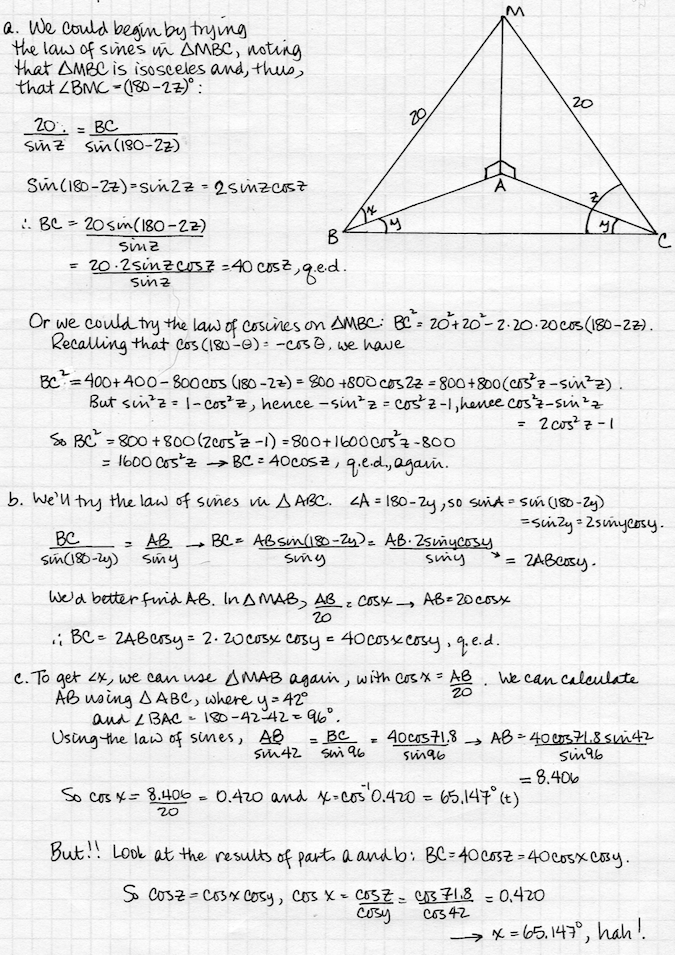 a. We could begin by trying
the law of sines in ΔMBC, noting
that ΔMBC is isosceles and, thus,
that ∠BMC = (180-2z)°:
20 / sin z = BC / sin(180-2z)
Sin(180-2z) = sin2z = 2 sinz cosz
∴ BC = 20 sin(180-2z) / sin z
= 20·2sinz cosz / sin z = 40 cosz, q.e.d.
M
20
20
A
z
x
y
y
B
C
Or we could try the law of cosines on ΔMBC: BC² = 20²+20²-2·20·20cos(180-2z).
Recalling that cos(180-θ) = -cosθ, we have
BC² = 400+400-800cos(180-2z) = 800+800cos2z = 800+800(cos²z-sin²z).
But sin²z = 1-cos²z, hence -sin²z = cos²z-1, hence cos²z-sin²z
= 2cos²z-1
So BC² = 800+800(2cos²z-1) = 800+1600cos²z-800
= 1600cos²z → BC = 40cosz, q.e.d., again.
b. We'll try the law of sines in ΔABC. ∠A = 180-2y, so sinA = sin(180-2y)
= sin2y = 2sinycosy.
BC / sin(180-2y) = AB / sin y → BC = ABsin(180-2y) / sin y = AB·2sinycosy / sin y
= 2ABcosy.
We'd better find AB. In ΔMAB, AB / 20 = cosx → AB = 20cosx
∴ BC = 2ABcosy = 2·20cosx cosy = 40cosxcosy, q.e.d.
c. To get ∠x, we can use ΔMAB again, with cos x = AB / 20. We can calculate
AB using ΔABC, where y = 42°
and ∠BAC = 180-42-42 = 96°.
Using the law of sines, AB / sin 42 = BC / sin 96 = 40cos71.8 / sin96 → AB = 40cos71.8 sin42 / sin96
= 8.406
So cos x = 8.406 / 20 = 0.420 and x = cos⁻¹0.420 = 65.147° (t)
But!! Look at the results of parts a and b: BC = 40cosz = 40cosxcosy.
So cosz = cosxcosy, cos x = cosz / cosy = cos 71.8 / cos 42 = 0.420
→ x = 65.147°, hah!